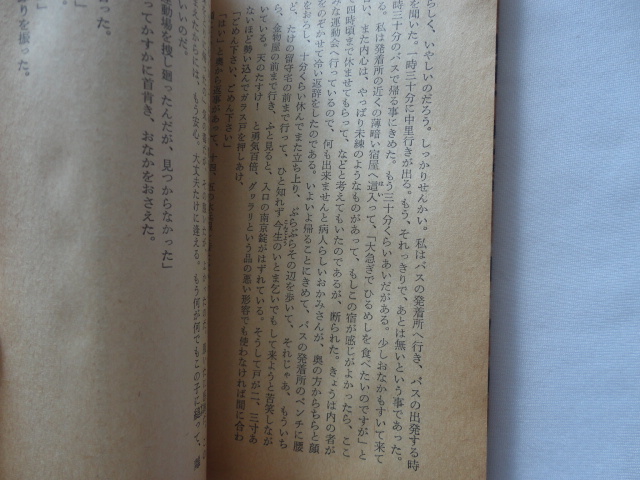 らしく、いやしいのだろう。しっかりせんかい。私はバスの発着所へ行き、バスの出発する時
を聞いた。一時三十分に中里行きが出る。もう、それっきりで、あとは無いという事であった。
時三十分のバスで帰る事にきめた。もう三十分くらいあいだがある。少しおなかもすいて来て
る。私は発着所の近くの薄暗い宿屋へ這入って、「大急ぎでひるめしを食べたいのですが」と
い、また内心は、やっぱり未練のようなものがあって、もしこの宿が感じがよかったら、ここ
四時頃まで休ませてもらって、などと考えてもいたのであるが、断られた。きょうは内の者が
みな運動会へ行っているので、何も出来ませんと病人らしいおかみさんが、奥の方からちらと顔
をのぞかせて冷い返辞をしたのである。いよいよ帰ることにきめて、バスの発着所のベンチに腰
をおろし、十分くらい休んでまた立ち上り、ぶらぶらその辺を歩いて、それじゃあ、もういち
ど、たけの留守宅の前まで行って、ひと知れず今生のいとま乞いでもして来ようと苦笑しなが
ら、金物屋の前まで行き、ふと見ると、入口の南京錠がはずれている。そうして戸が二、三寸あ
いている。天のたすけ!と勇気百倍、グヮラリという品の悪い形容でも使わなければ間に合わ
ないほど勢い込んでガラス戸を押しあけ、
「ごめん下さい、ごめん下さい」
「はい」と奥から返事があって、
もう安心。大丈夫たけに逢える。もう何が何でもこの子に縋って、
いいのだ。
運動場を捜し廻ったんだが、見つからなかった」
ってかすかに首肯き、おなかをおさえた。
った。
りを振った。